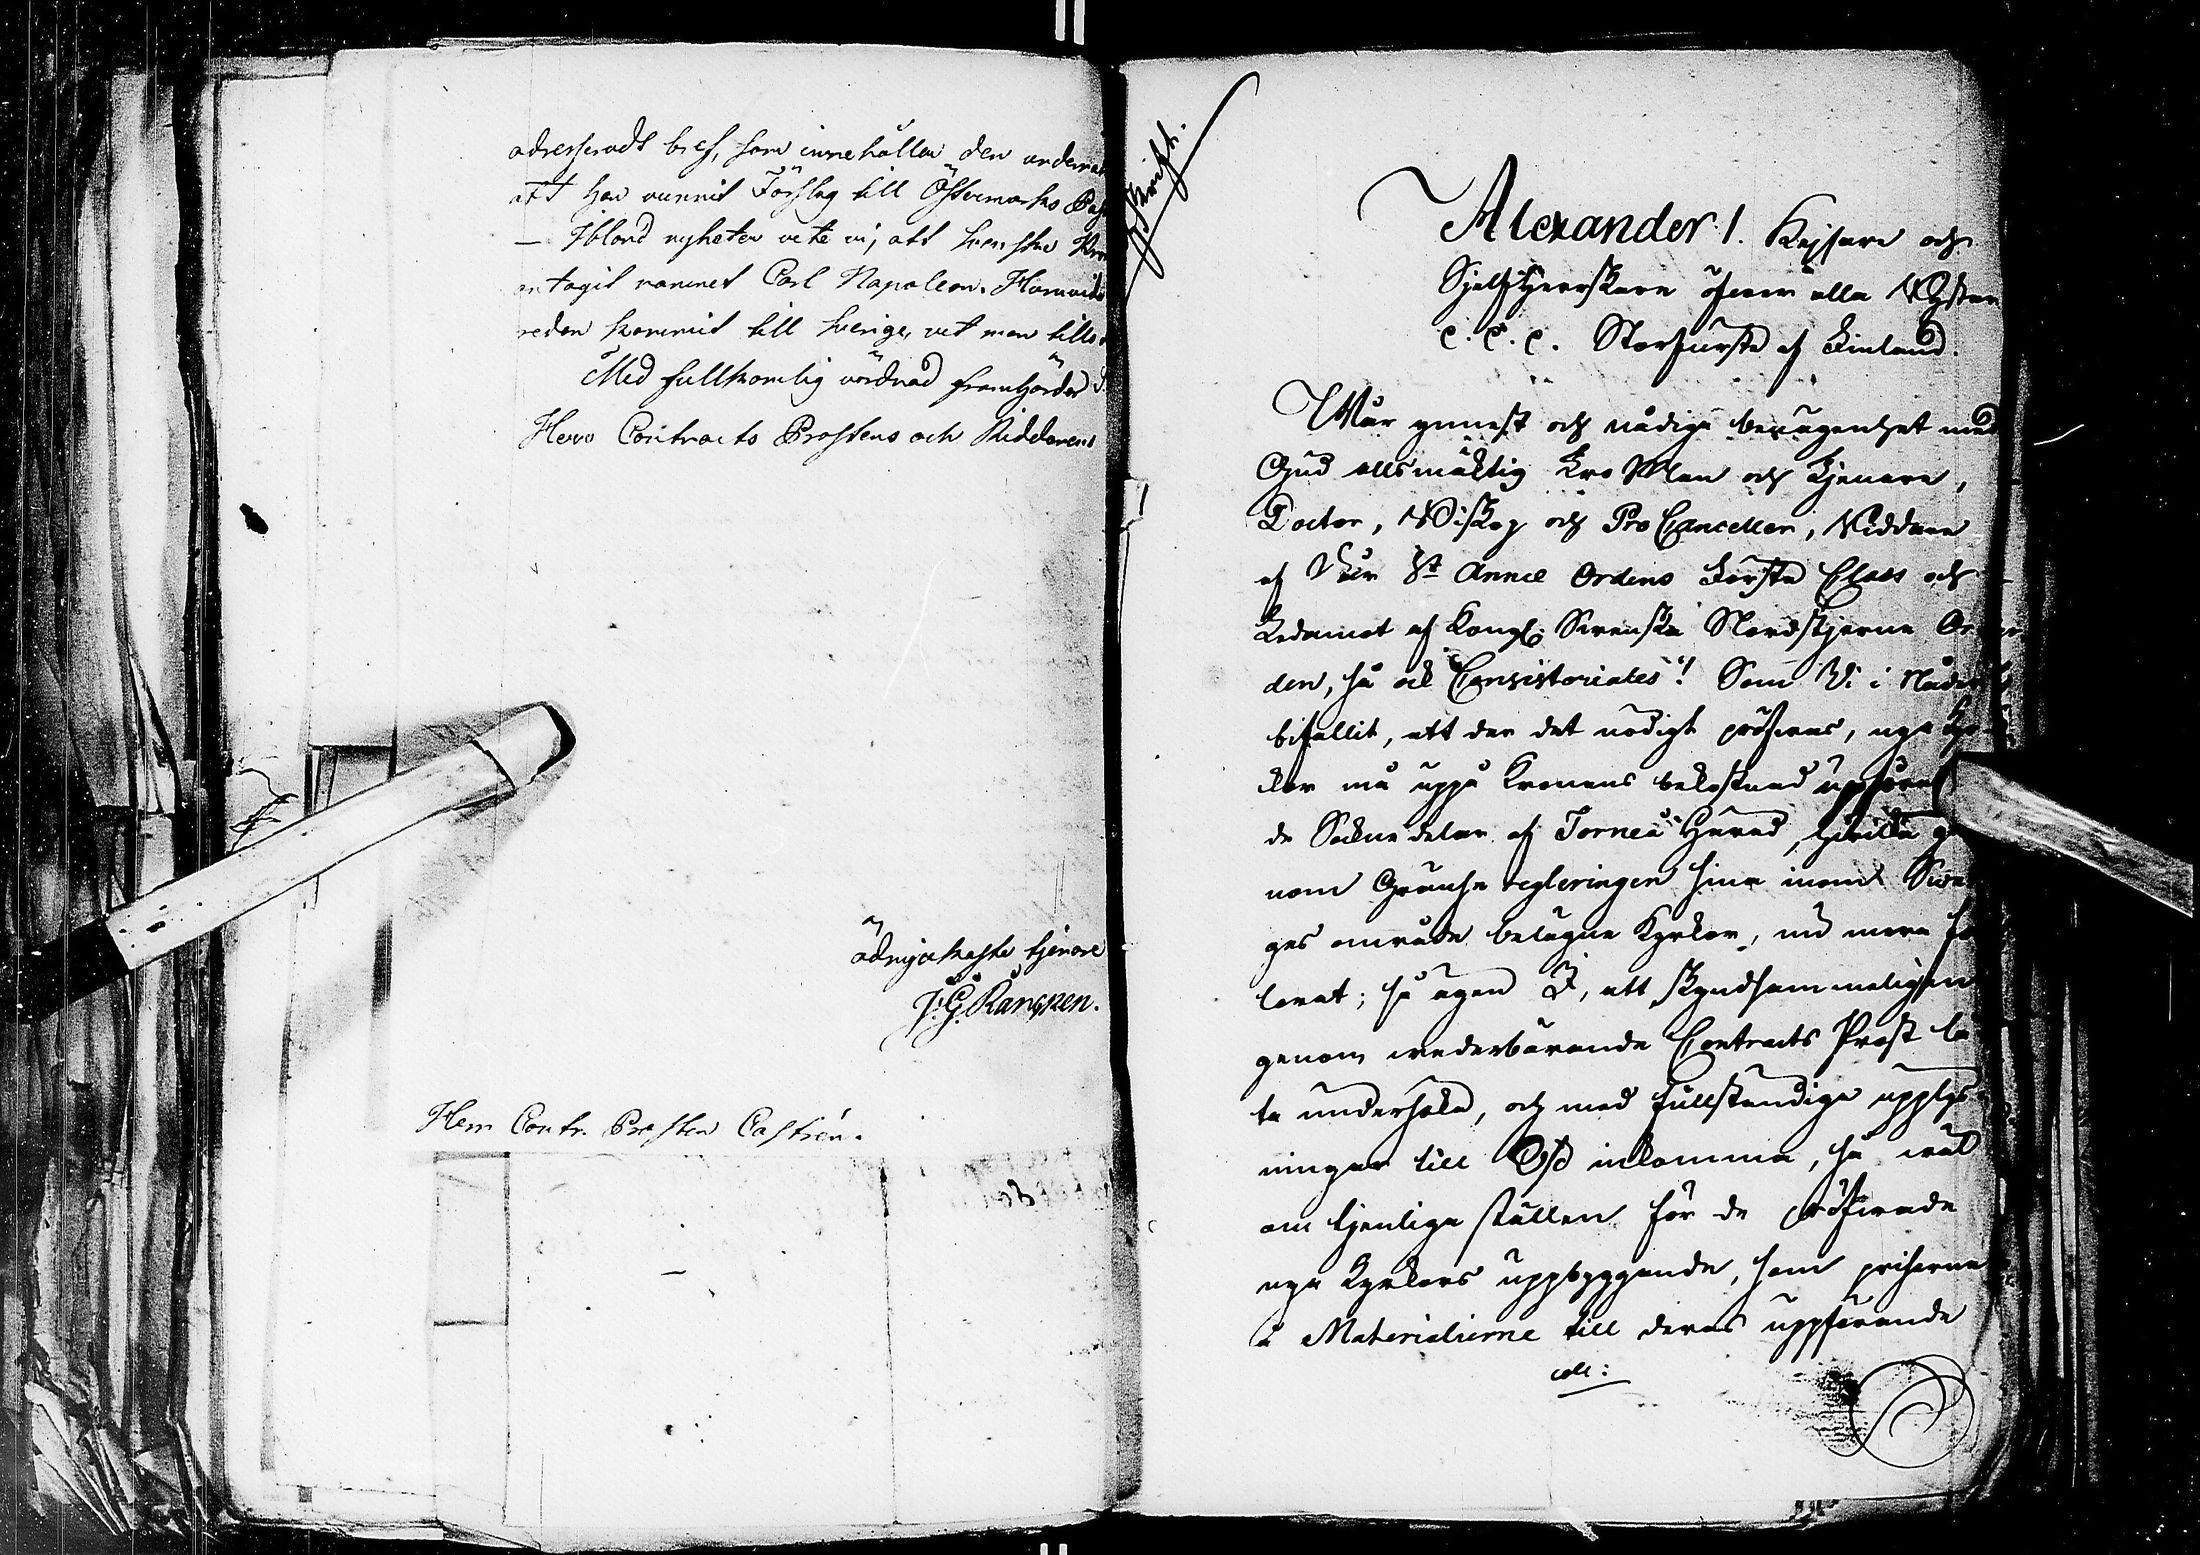 adresseradt bref, som innehåller den underrät
att han vunnit Förslag till Östermarks Past
— Ibland nyheter vete vi, att Svenske Kron
antagit namnet Carl Napoleon. Huruvida
redan kommit till Sverige, vet man tills
Med fullkomlig vördnad framhärdar
Herr Contracts Prostens och Riddarens
ödmjukaste tjenare
J: G: Rancken.
Herr Contr. Prosten Castrén.
Afskrift.
Alexander I. Kejsare och
Sjelfherrskare öfwer alla Ryssar
&. &. &. Storfurste af Finland.
Wår ynnest och nådiga bewågenhet med
Gud allsmäktig Tro Man och Tjenare,
Doctor, Biskop och Pro Canceller, Riddare
af Vår St Annæ Ordens Första Class och
Ledamot af Kongl. Swenska Nordstjerne Or
den, så ock Consistoriales! Som Vi i Nåder
bifallit, att der det nödigt pröfwas, nya Kyr
kor må uppå Kronans bekostnad uppföras
de Sockne delar af Torneå Härad, hwilka ge
nom Gränse regleringen sina inom Swe
ges område belägne Kyrkor, nu mera för
lorat; så ägen I, att skyndsammeligen
genom wederbörande Contracts Prost lå
ta undersöka, och med fullständiga upplys
ningar till Oss inkomma, så wäl
om tjenliga ställen för de pröfwade
nya Kyrkors uppbyggande, som priserne
å Materialierne till deras uppförande